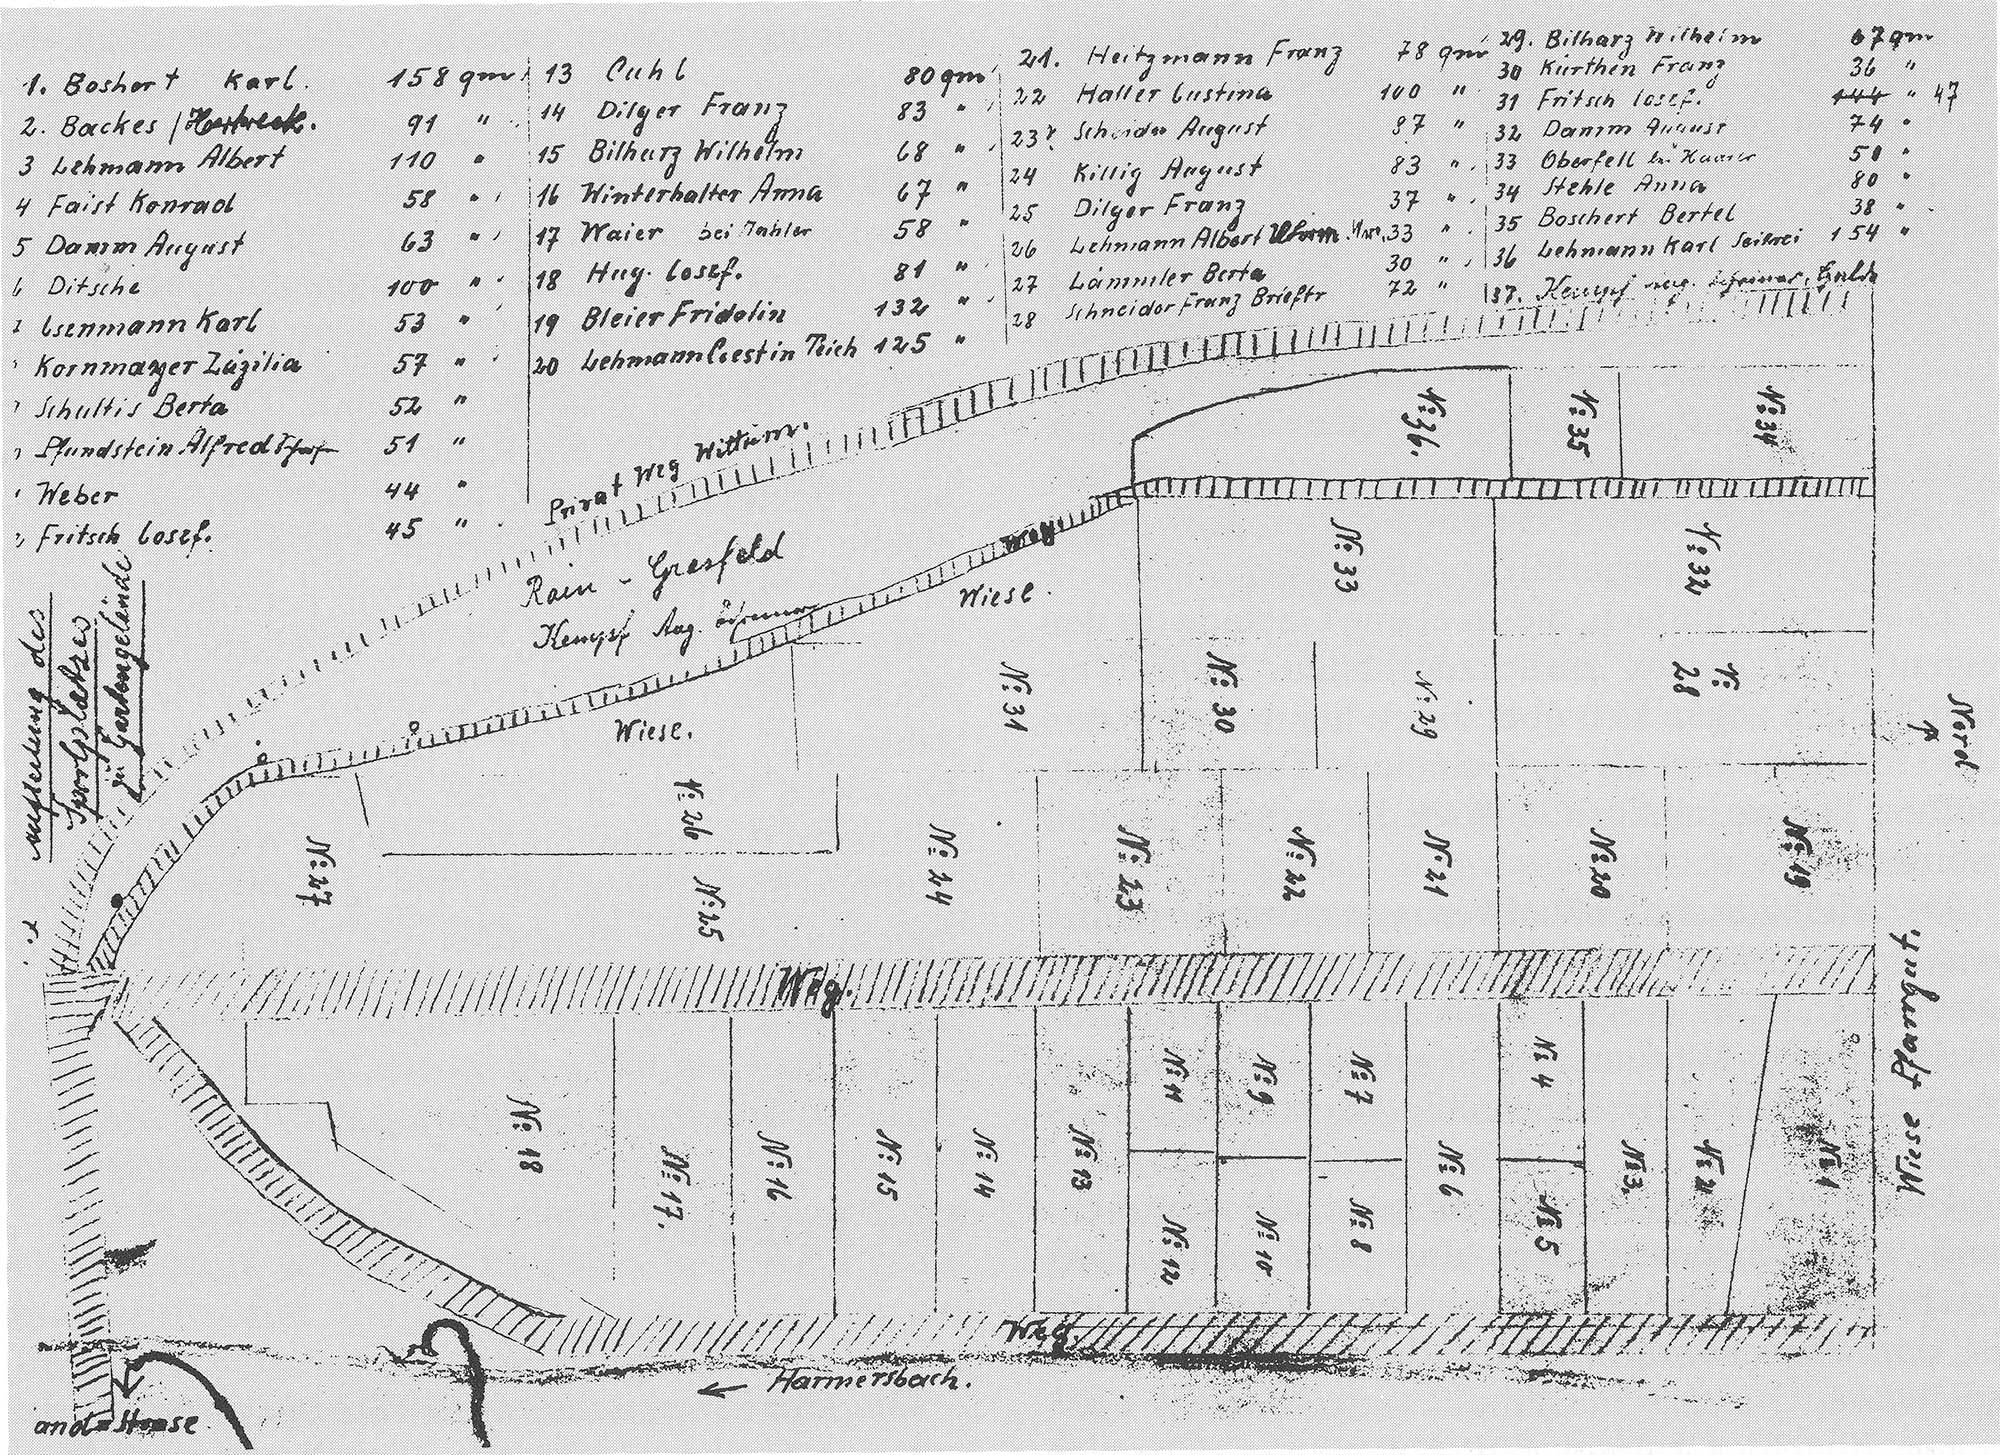 1. Boshert Karl. 158 qm
2. Backes / 91 "
3 Lehmann Albert 110 "
4 Faist Konrad 58 "
5 Damm August 63 "
6 Ditsche 100 "
Isenmann Karl 53 "
Kornmayer Zäzilia 57 "
Schultis Berta 52 "
Pfundstein Alfred 51 "
Weber 44 "
Fritsch Josef. 45 "
13 Cuhl 80 qm
14 Dilger Franz 83 "
15 Bilharz Wilhelm 68 "
16 Winterhalter Anna 67 "
17 Waier bei Mahler 58 "
18 Hug. Josef. 81 "
19 Bleier Fridolin 132 "
20 Lehmann Teich 125 "
21. Heitzmann Franz 78 qm
22 Haller Justina 100 "
23 August 87 "
24 Killig August 83 "
25 Dilger Franz 37 "
26 Lehmann Albert 33 "
27 Lämmler Berta 30 "
28 Schneider Franz Brieftr 72 "
29. Bilharz Wilhelm 67 qm
30 Kürthen Franz 36 "
31 Fritsch Josef. 144 " 47
32 Damm August 74 "
33 Oberfell bei 50 "
34 Stehle Anna 80 "
35 Boschert Bertel 38 "
36 Lehmann Karl Seilerei 154 "
37. Kempf Aug.
Aufteilung des
Sportplatzes
zu Gartengelände
Privat Weg Wittum.
Rain - Grasfeld
Kempf Aug.
Weg
Wiese.
Wiese.
No 36.
No 35
No 34
No 33
No 32
No 31
No 30
No 29
No 28
No 27
No 26
No 25
No 24
No 23
No 22
No 21
No 20
No 19
Nord
Weg.
No 18
No 17.
No 16
No 15
No 14
No 13
No 11
No 12
No 9
No 10
No 7
No 8
No 6
No 4
No 5
No 3.
No 2
No 1
Wiese Pfarrgut.
Weg.
← Harmersbach.